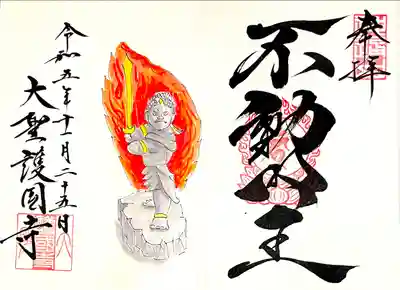 奉拝
不動明王
令和五年十二月二十五日
大聖護国寺